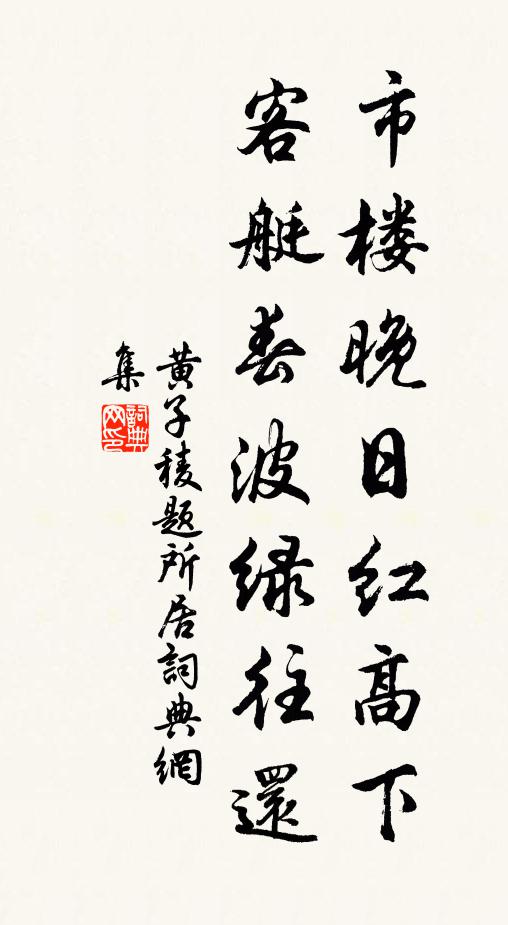 市楼晚日红高下
客艇春波绿往還
黄子稜题所居詞典網
集
詞典网印